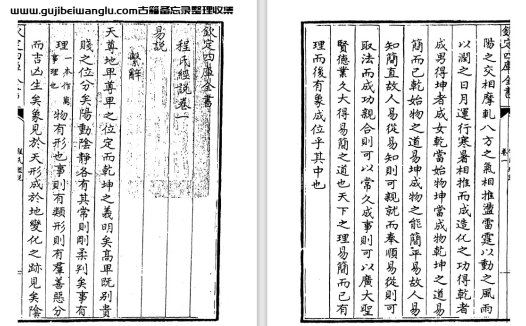 www.gujibeiwanglu.com古籍备忘录整理收集
欽定四庫全書
程氏經說卷一
易說
繫辭
天尊地卑尊卑之位定而乾坤之義明矣高卑既别貴
賤之位分矣陽動陰靜各有其常則剛柔判矣事有
理一本作萬事理也物有形也事則有類形則有羣善惡分
而吉凶生矣象見於天形成於地變化之跡見矣陰
欽定四庫全書
卷一
陽之交相摩軋八方之氣相推盪雷霆以動之風雨
以潤之日月運行寒暑相推而成造化之功得乾者
成男得坤者成女乾當始物坤當成物乾坤之道易
簡而已乾始物之道易坤成物之能簡平易故人易
知簡直故人易從易知則可親就而奉順易從則可
取法而成功親合則可以常久成事則可以廣大聖
賢德業久大得易簡之道也天下之理易簡而已有
理而後有象成位乎其中也